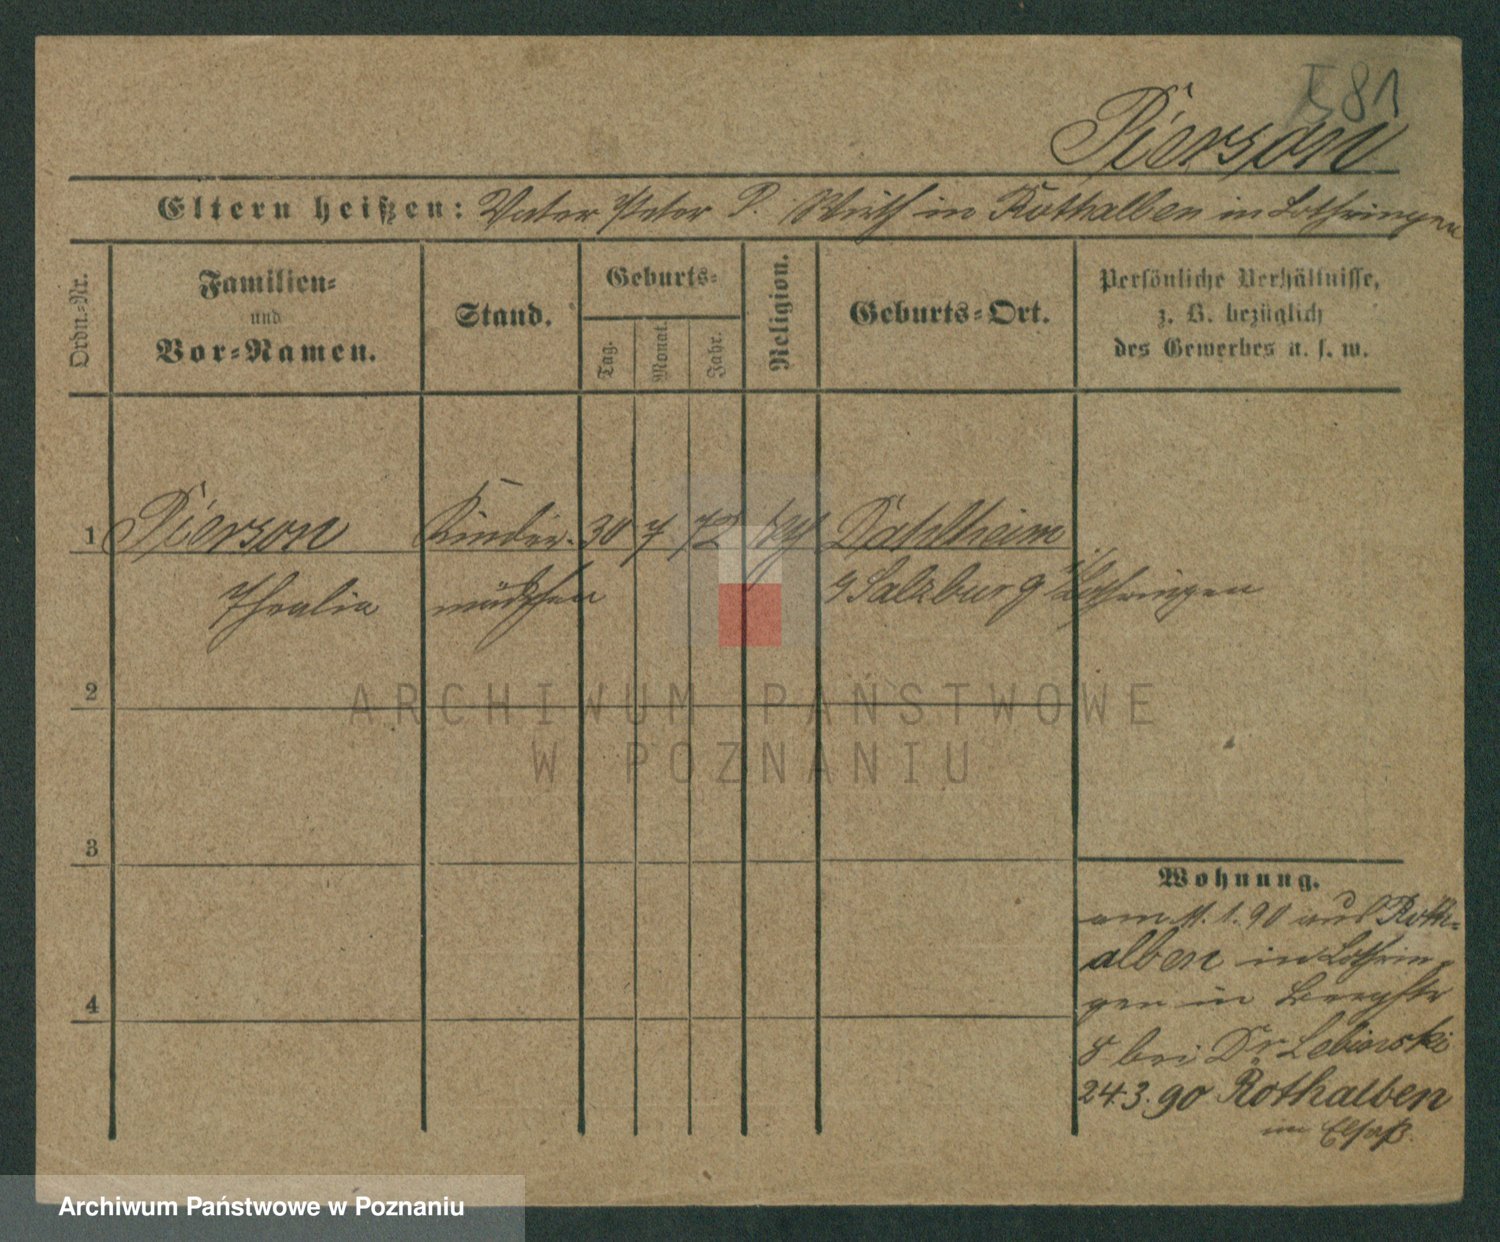 I 81
Pierson
Eltern heißen: Vater Peter P. Wirth in Rothalben in Lothringen
Ordn.-Nr.
Familien-
und
Vor-Namen.
Stand.
Geburts-
Tag.
Monat.
Jahr.
Religion.
Geburts-Ort.
Persönliche Verhältnisse,
z. B. bezüglich
des Gewerbes u. s. w.
1 Pierson Kinder- 30 7 72 Dahlheim
mädchen Salzburg Lothringen
2
ARCHIWUM PAŃSTWOWE
W POZNANIU
3
Wohnung.
am 11. 1. 90 aus Roth-
alben in Lothrin-
gen in Bergstr
8 bei Dr Lebinski
24.3.90 Rothalben
im Elsaß.
4
Archiwum Państwowe w Poznaniu